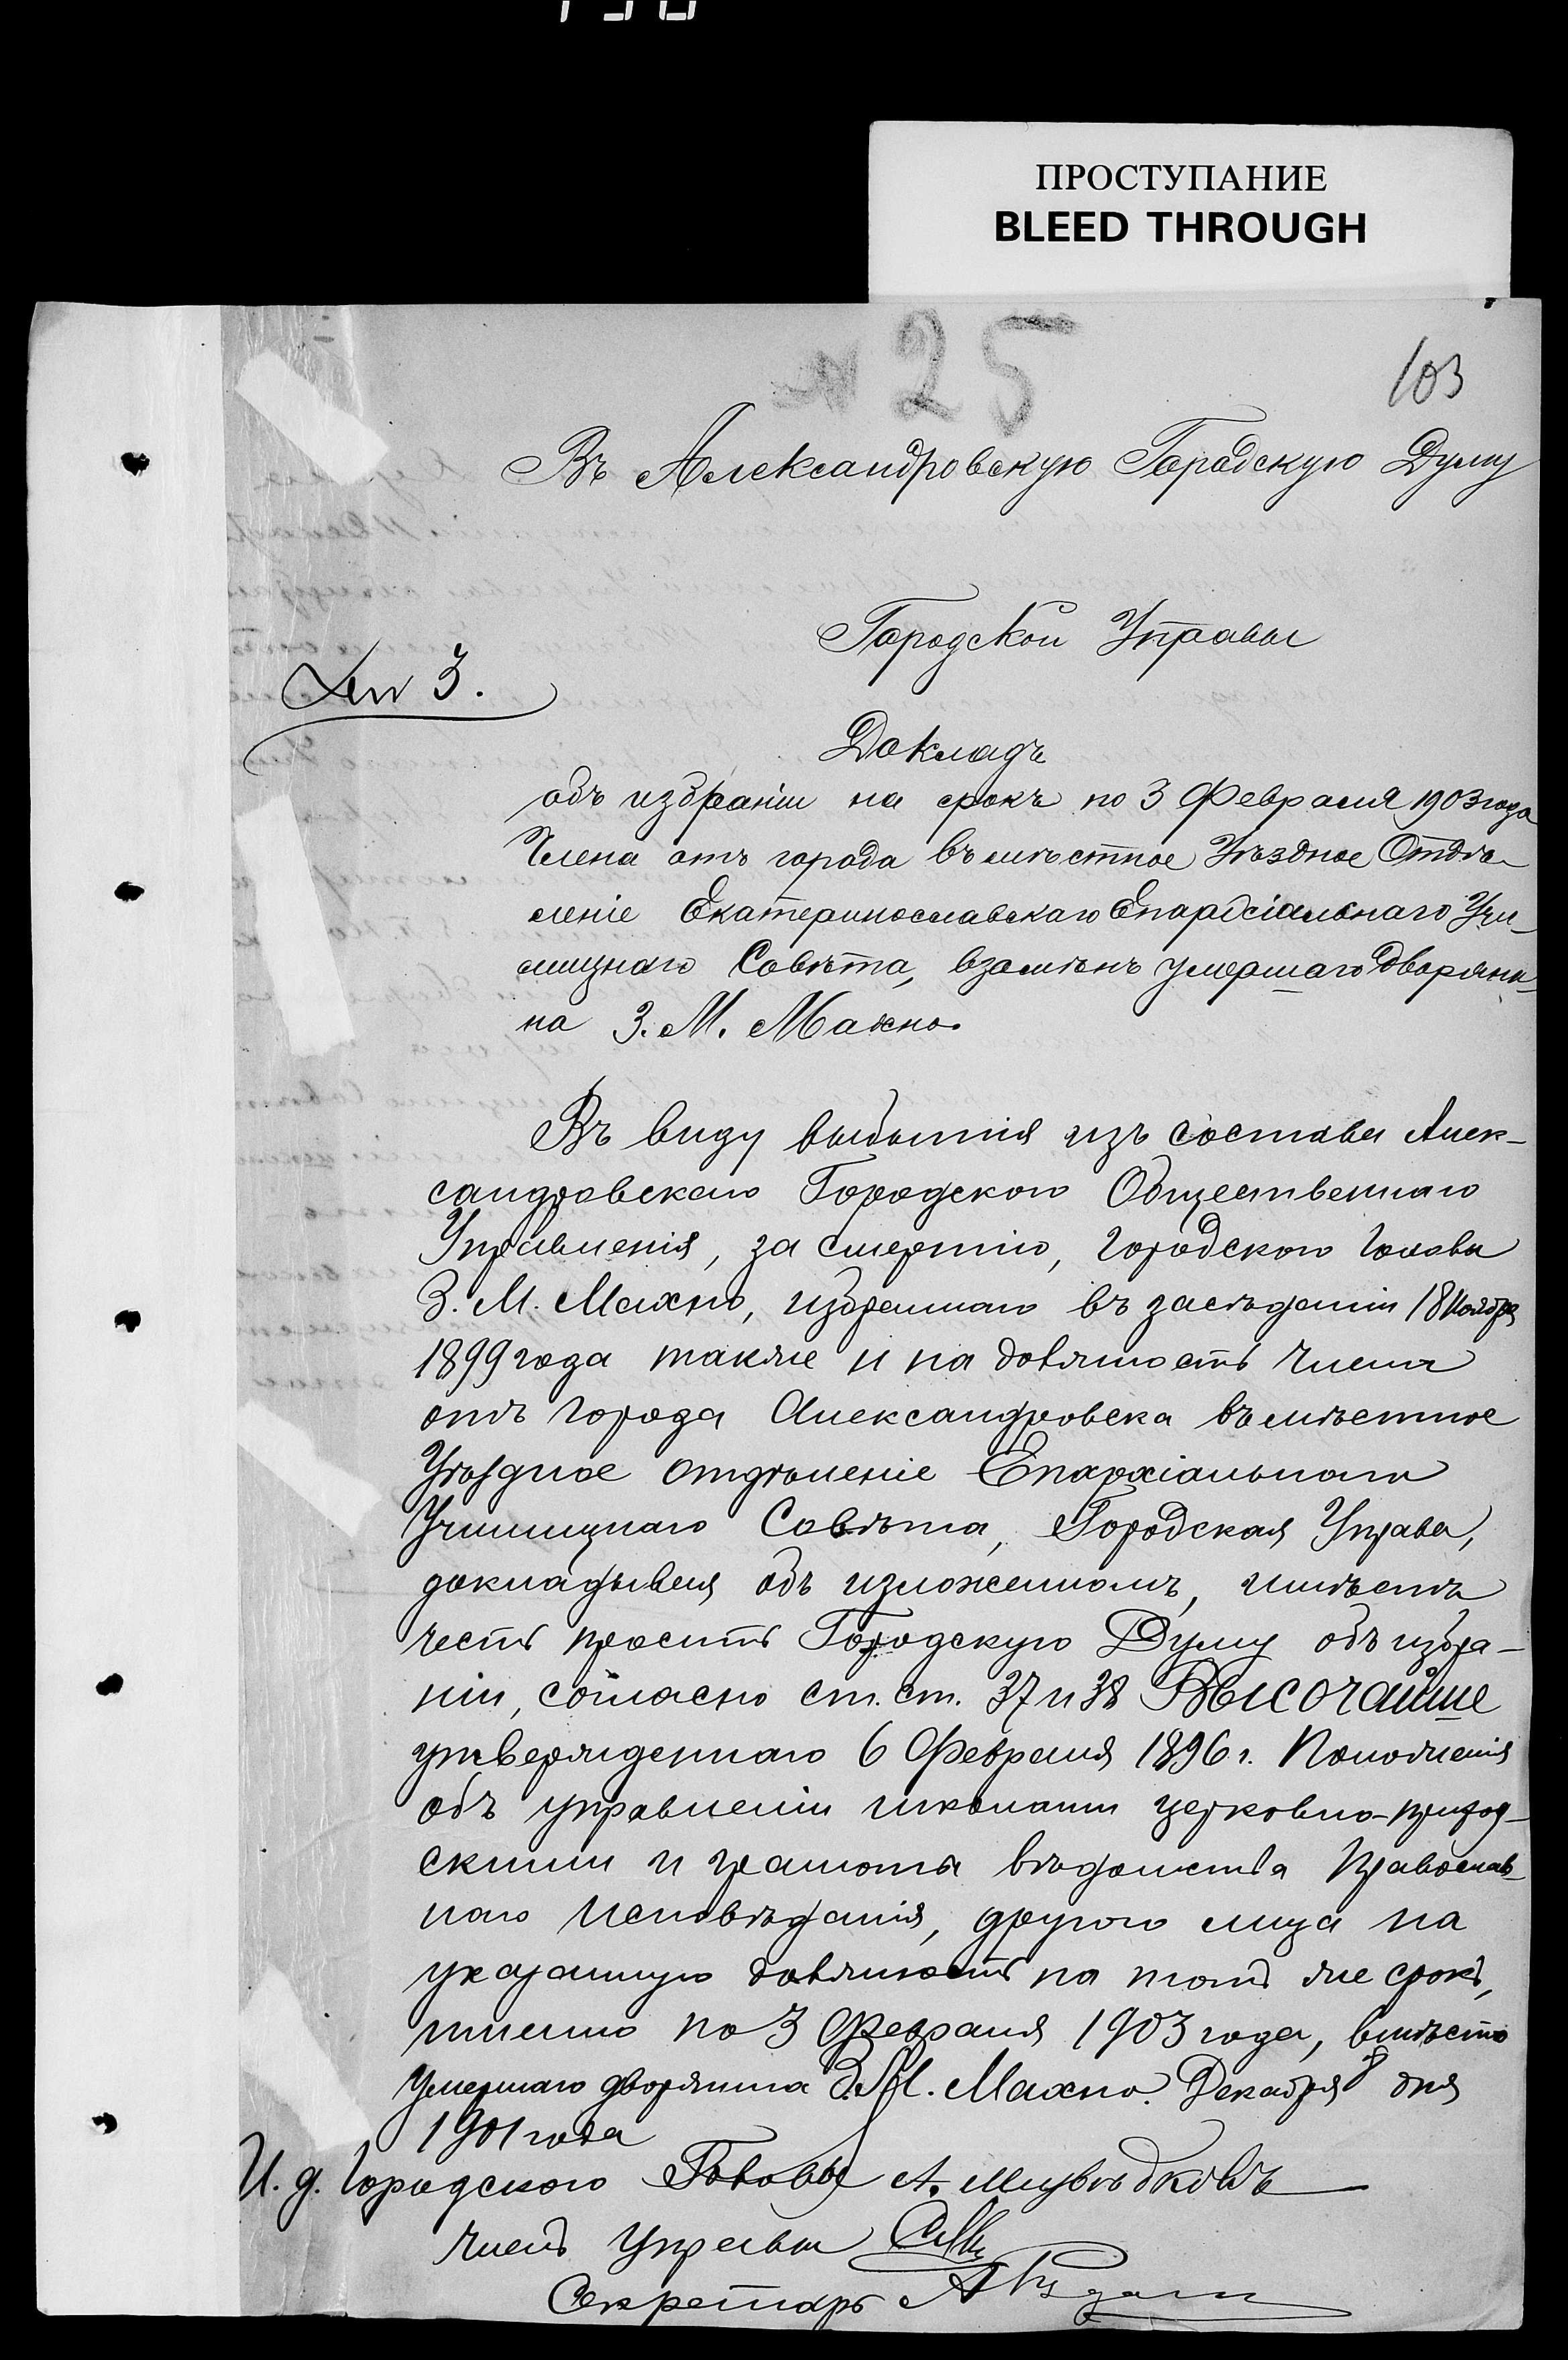 ПРОСТУПАНИЕ
BLEED THROUGH
№ 25
103
Въ Александровскую Городскую Думу
Городской Управы
3.
Докладъ
объ избраніи на срокъ по 3 Февраля 1903 года
Члена отъ города въ мѣстное Уѣздное Отдѣ-
леніе Екатеринославскаго Епархіальнаго Учи-
лищнаго Совѣта, взамѣнъ умершаго дворяни-
на З. М. Махно.
Въ виду выбытія изъ состава Алек-
сандровскаго Городского Общественнаго
Управленія, за смертію, Городского Головы
З. М. Махно, избраннаго въ засѣданіи 18 Ноября
1899 года также и на должность Члена
отъ города Александровска въ мѣстное
Уѣздное отдѣленіе Епархіальнаго
Училищнаго Совѣта, Городская Управа,
докладывая объ изложенномъ, имѣетъ
честь просить Городскую Думу объ избра-
ніи, согласно ст. ст. 37 и 38 Высочайше
утвержденнаго 6 Февраля 1896 г. Положенія
объ управленіи школами церковно-приход-
скими и грамоты вѣдомства Православ-
наго Исповѣданія, другого лица на
указанную должность на тотъ же срокъ,
именно по 3 Февраля 1903 года, вмѣсто
умершаго дворянина З. М. Махно. Декабря 8 дня
1901 года
И. д. Городского Головы А.
Членъ Управы
Секретарь